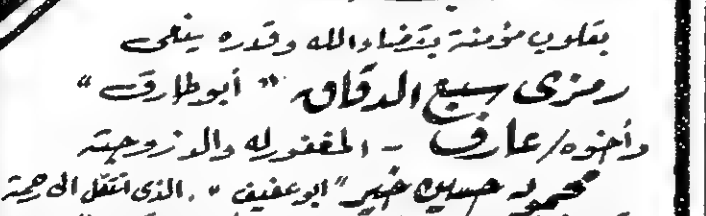 بقلوب مؤمنة بقضاء الله وقدره ينعى
رمزى سبع الدقاق "أبو طارق"
وأخوه/عارف - المغفور له والد زوجته
محمود حسين خير "ابو عفيف". الذى انتقل الى رحمة